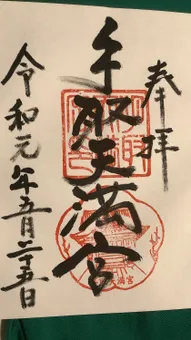 奉拝
牟取天満宮
令和元年五月二十五日
天満宮